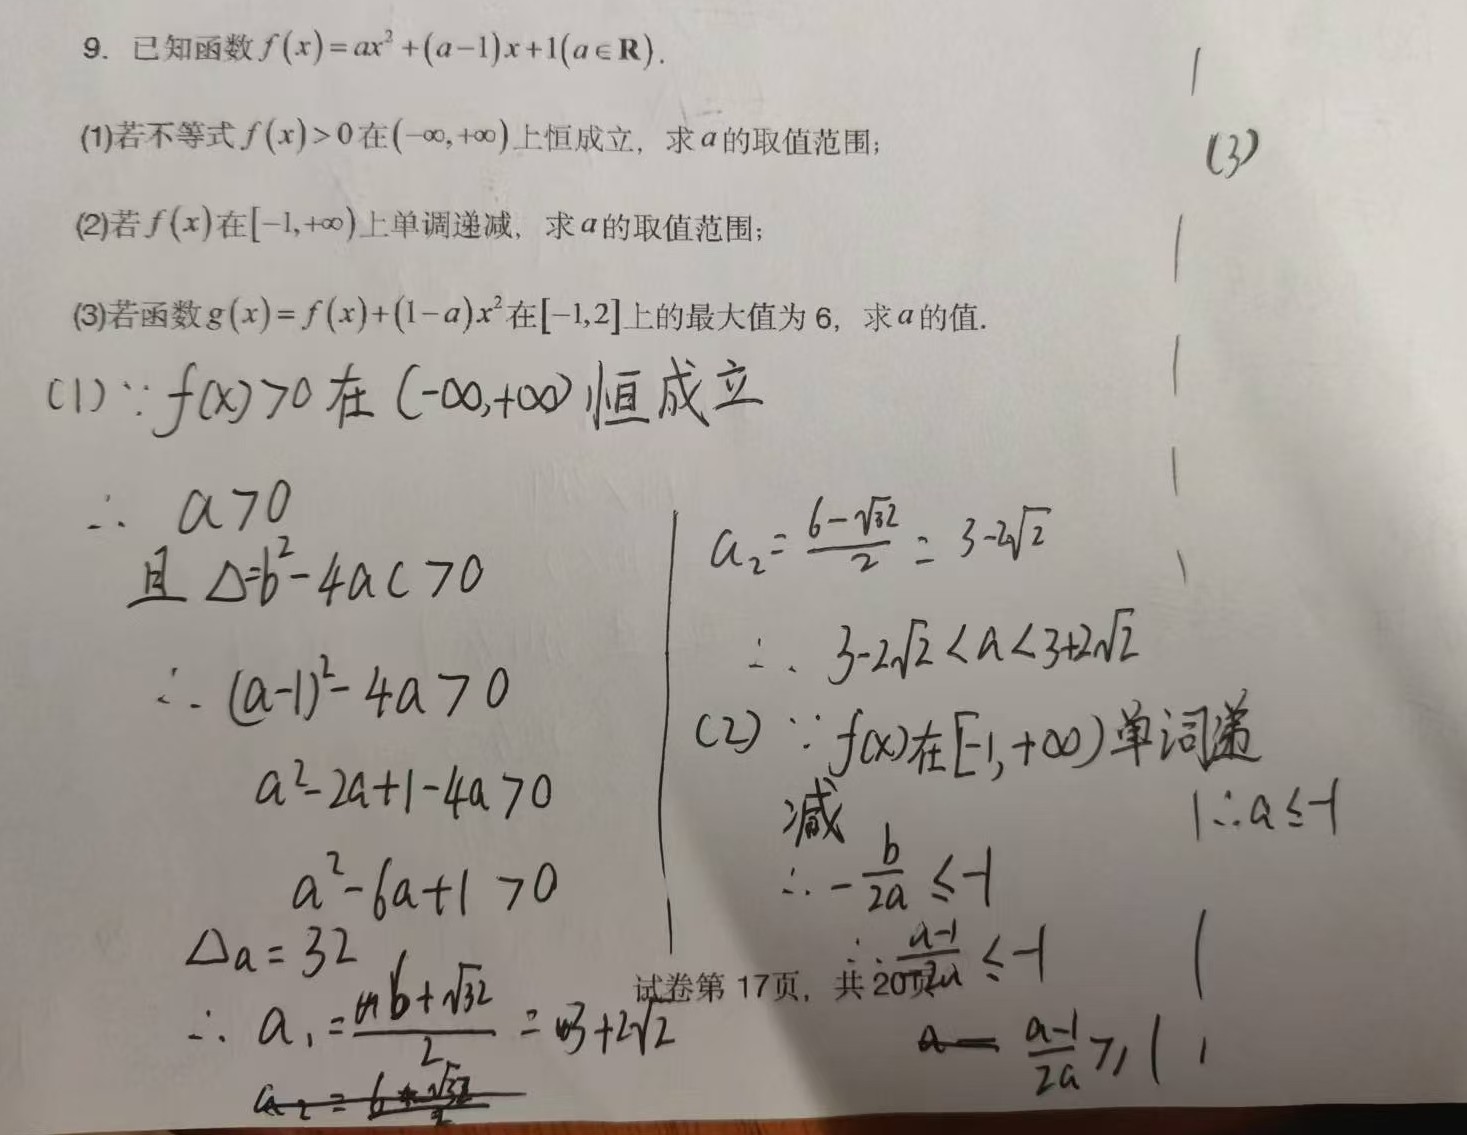 9. 已知函数 f(x)=ax²+(a−1)x+1(a∈R).
(1)若不等式 f(x)>0在(−∞,+∞)上恒成立，求a的取值范围；
(2)若 f(x)在[−1,+∞)上单调递减，求a的取值范围；
(3)若函数 g(x)=f(x)+(1−a)x²在[−1,2]上的最大值为6，求a的值.
(1)∵f(x)>0在(-∞,+∞)恒成立
∴ a>0
且 Δ=b²-4ac>0
∴ (a-1)²-4a>0
a²-2a+1-4a>0
a²-6a+1>0
Δa=32
∴ a₁=(6+√32)/2=3+2√2
a₂=(6-√32)/2=3-2√2
∴ 3-2√2<a<3+2√2
(2) ∵f(x)在[-1,+∞)单词递
减
∴ -b/2a ≤-1
∴ (a-1)/-2a ≤-1
(a-1)/2a ≥1
∴a≤-1
(3)
试卷第17页，共20页